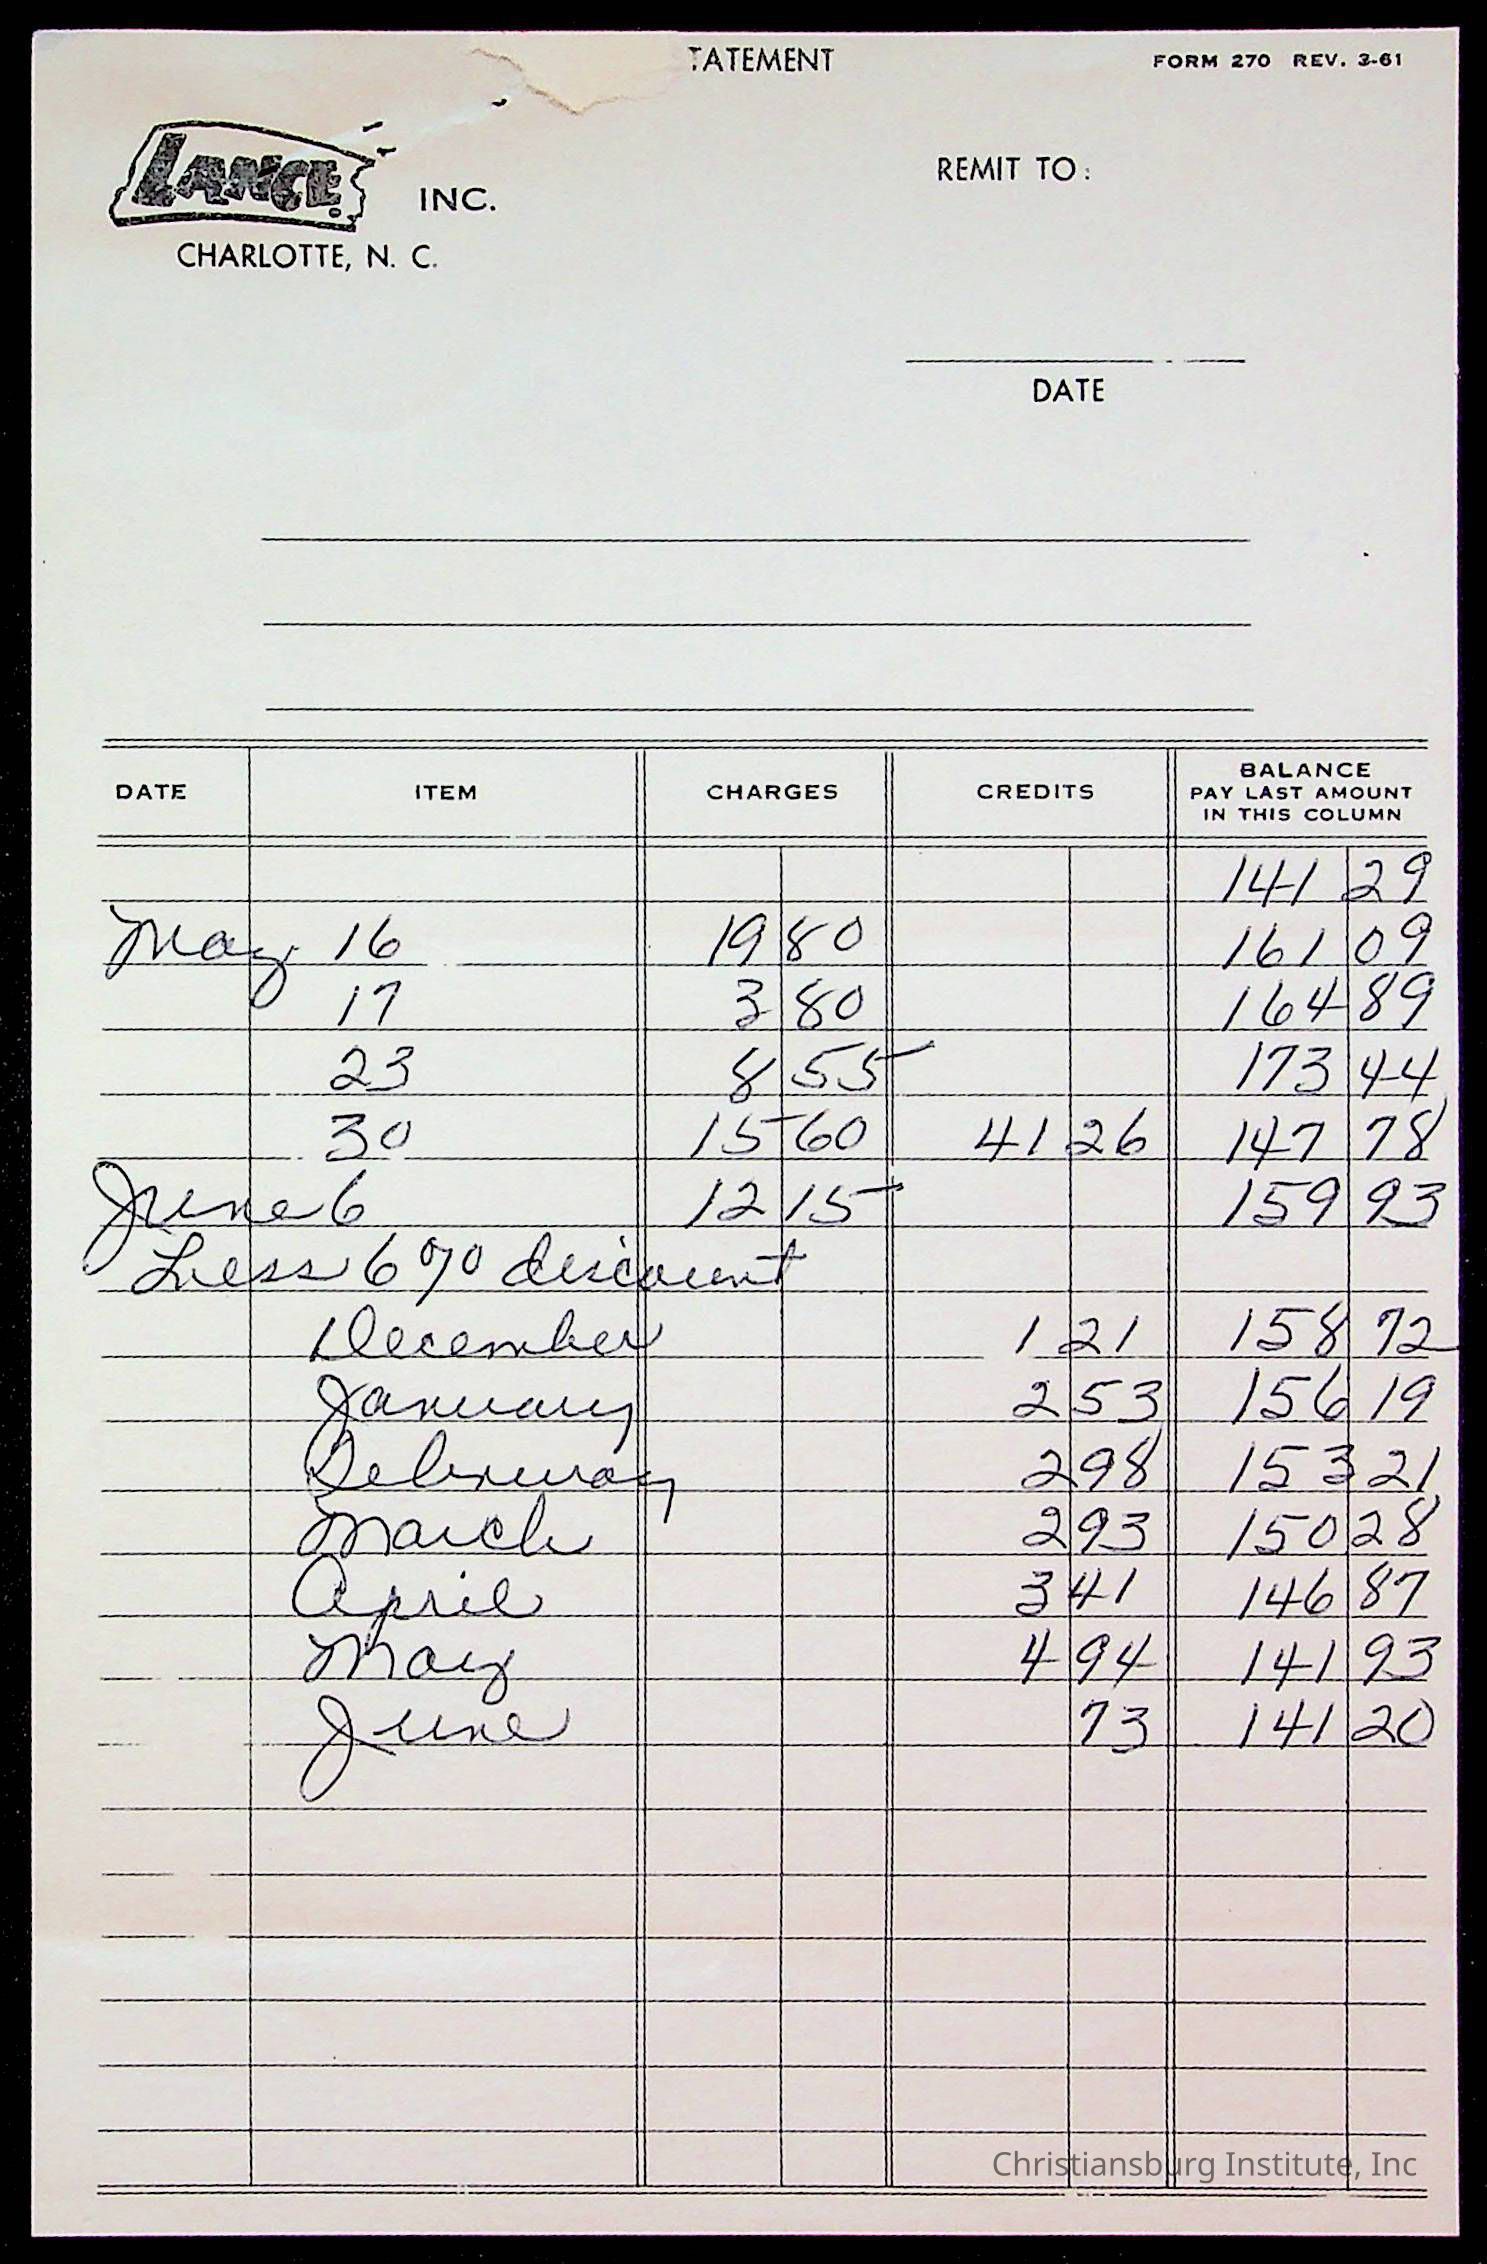 TATEMENT FORM 270 REV. 3-61
LANCE INC.
REMIT TO:
CHARLOTTE, N. C.
DATE
DATE ITEM CHARGES CREDITS BALANCE
PAY LAST AMOUNT
IN THIS COLUMN
141 29
May 16 19 80 161 09
17 3 80 164 89
23 8 55 173 44
30 15 60 41 26 147 78
June 6 12 15 159 93
Less 6% discount
December 1 21 158 72
January 2 53 156 19
February 2 98 153 21
March 2 93 150 28
April 3 41 146 87
May 4 94 141 93
June 73 141 20
Christiansburg Institute, Inc